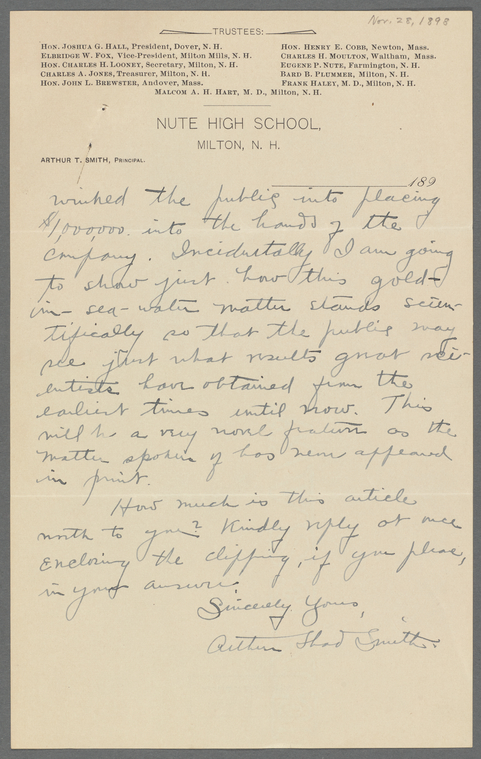 Nov. 28, 1898
TRUSTEES:
HON. JOSHUA G. HALL, President, Dover, N. H.
ELBRIDGE W. FOX, Vice-President, Milton Mills, N. H.
HON. CHARLES H. LOONEY, Secretary, Milton, N. H.
CHARLES A. JONES, Treasurer, Milton, N. H.
HON. JOHN L. BREWSTER, Andover, Mass.
HON. HENRY E. COBB, Newton, Mass.
CHARLES H. MOULTON, Waltham, Mass.
EUGENE P. NUTE, Farmington, N. H.
BARD B. PLUMMER, Milton, N. H.
FRANK HALEY, M. D., Milton, N. H.
MALCOM A. H. HART, M. D., Milton, N. H.
NUTE HIGH SCHOOL,
MILTON, N. H.
ARTHUR T. SMITH, PRINCIPAL.
189
winked the public into placing
$1,000,000. into the hands of the
company. Incidentally I am going
to show just how this gold-
in-sea-water matter stands scien-
tifically so that the public may
see just what results great sci-
entists have obtained from the
earliest times until now. This
will be a very novel feature as the
matter spoken of has never appeared
in print.
How much is this article
worth to you? Kindly reply at once
enclosing the clipping, if you please,
in your answer.
Sincerely Yours,
Arthur Thad Smith.